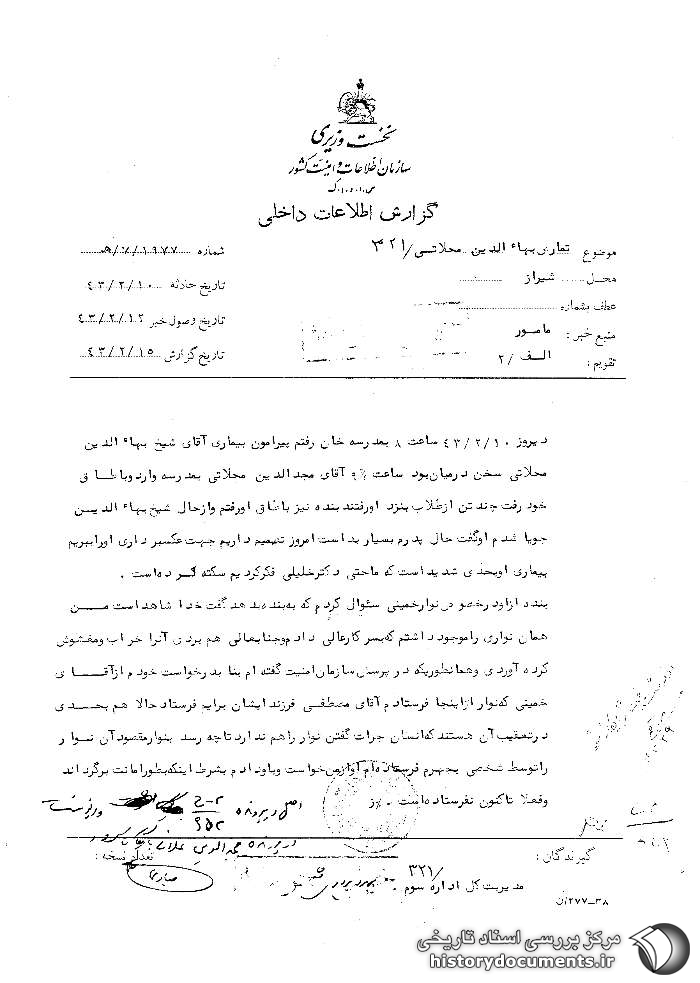 نخست وزیری
سازمان اطلاعات و امنیت کشور
س.ا.و.ا.ک
گزارش اطلاعات داخلی
موضوع تعارض بهاء الدین محلاتی /۳۲۱
شماره ۱۹۷۷/۷/ه
محل شیراز
تاریخ حادثه ۴۳/۲/۱۰
عطف بشماره
تاریخ وصول خبر ۴۳/۲/۱۲
منبع خبر: مامور
تاریخ گزارش ۴۳/۲/۱۵
تقویم: الف /۲
دیروز ۴۳/۲/۱۰ ساعت ۸ بمدرسه خان رفتم پیرامون بیماری آقای شیخ بهاء الدین
محلاتی سخن درمیان بود ساعت آقای مجدالدین محلاتی بمدرسه وارد وباطاق
خود رفت چند تن ازطلاب بنزد اورفتند بنده نیز باطاق اورفتم وازحال شیخ بهاء الدیــن
جویا شدم اوگفت حال پدرم بسیار بد است امروز تصمیم داریم جهت عکسبرداری اوراببریم
بیماری اوبحدی شدید است که ماحتی دکترخلیلی فکرکردیم سکته کرده است .
بنده ازاودرخصوص نوارخمینی سئوال کردم که به بنده بدهد گفت خدا شاهد است مــن
همان نواری راموجود داشتم که بسرکارعالی دادم وجنابعالی هم بردی آنرا خراب ومغشوش
کرده آوردی وهمانطوریکه در پرسش سازمان امنیت گفته ام بنا بدرخواست خودم ازآقـــای
خمینی که نوار ازاینجا فرستادم آقای مصطفی فرزند ایشان برایم فرستاد حالا هم بحــدی
درتعقیب آن هستند که انسان جرات گفتن نوار راهم ندارد تاچه رسد بنوارمقصود آن نــوار
راتوسط شخصی بجهرم فرستاده ام آوازمن خواست وباودادم بشرط اینکه بطورامانت برگرداند
وفعلا تاکنون نفرستاده است .
اصل در پرونده
در پرونده مجدالدین محلاتی
گیرندگان :
تعداد نسخه :
مدیریت کل اداره سوم /۳۲۱
صابری
۳۸_۲۷۷/ن
مرکز بررسی اسناد تاریخی
historydocuments.ir